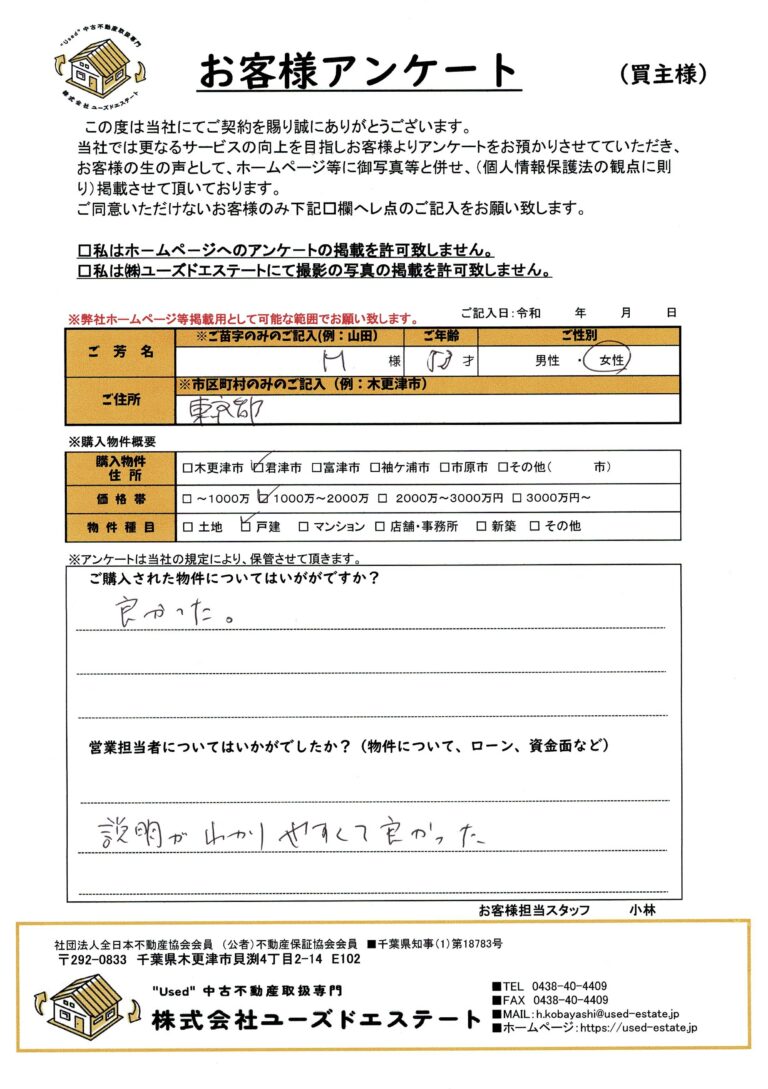 "Used" 中古不動産取扱専門
株式会社ユーズドエステート
お客様アンケート
（買主様）
この度は当社にてご契約を賜り誠にありがとうございます。
当社では更なるサービスの向上を目指しお客様よりアンケートをお預かりさせてていただき、
お客様の生の声として、ホームページ等に御写真等と併せ、（個人情報保護法の観点に則
り）掲載させて頂いております。
ご同意いただけないお客様のみ下記□欄へレ点のご記入をお願い致します。
□私はホームページへのアンケートの掲載を許可致しません。
□私は㈱ユーズドエステートにて撮影の写真の掲載を許可致しません。
ご記入日：令和　　年　　月　　日
※弊社ホームページ等掲載用として可能な範囲でお願い致します。
ご芳名
※ご苗字のみのご記入(例：山田)
ご年齢
ご性別
M 様
才
男性 ・ 女性
ご住所
※市区町村のみのご記入（例：木更津市）
東京都
※購入物件概要
購入物件
住所
□木更津市 ☑君津市 □富津市 □袖ケ浦市 □市原市 □その他（　　市）
価格帯
□ ～1000万 ☑ 1000万～2000万 □ 2000万～3000万円 □ 3000万円～
物件種目
□ 土地 ☑ 戸建 □ マンション □ 店舗・事務所 □ 新築 □ その他
※アンケートは当社の規定により、保管させて頂きます。
ご購入された物件についてはいががですか？
良かった。
営業担当者についてはいかがでしたか？（物件について、ローン、資金面など）
説明がわかりやすくて良かった
お客様担当スタッフ　　小林
社団法人全日本不動産協会会員 （公者）不動産保証協会会員 ■千葉県知事（1）第18783号
〒292-0833 千葉県木更津市貝渕4丁目2-14 E102
"Used" 中古不動産取扱専門
株式会社ユーズドエステート
■TEL 0438-40-4409
■FAX 0438-40-4409
■MAIL：h.kobayashi@used-estate.jp
■ホームページ：https://used-estate.jp